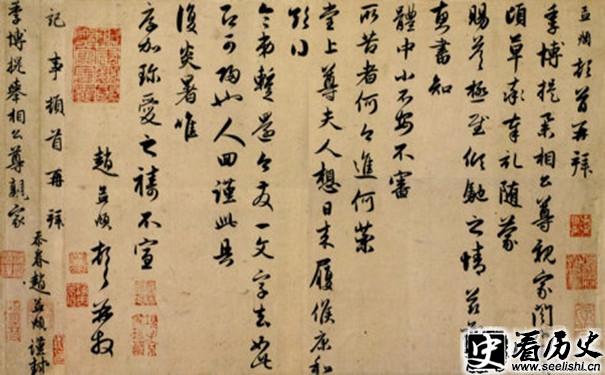 孟頫頓首再拜
季博提舉相公尊親家閣
頃草率奉札隨蒙
賜答極慰傾馳之情
真書知
體中小不安不審
所苦者何今進何藥
堂上尊夫人想日來履候康和
令弟一文字去如此
可歸也人回謹此具
復炎暑唯
厚加珍愛之禱不宣
趙孟頫頓首再拜
記事頓首再拜
季博提舉相公尊親家
忝眷趙孟頫謹封
史
看历史
www.seelishi.cn